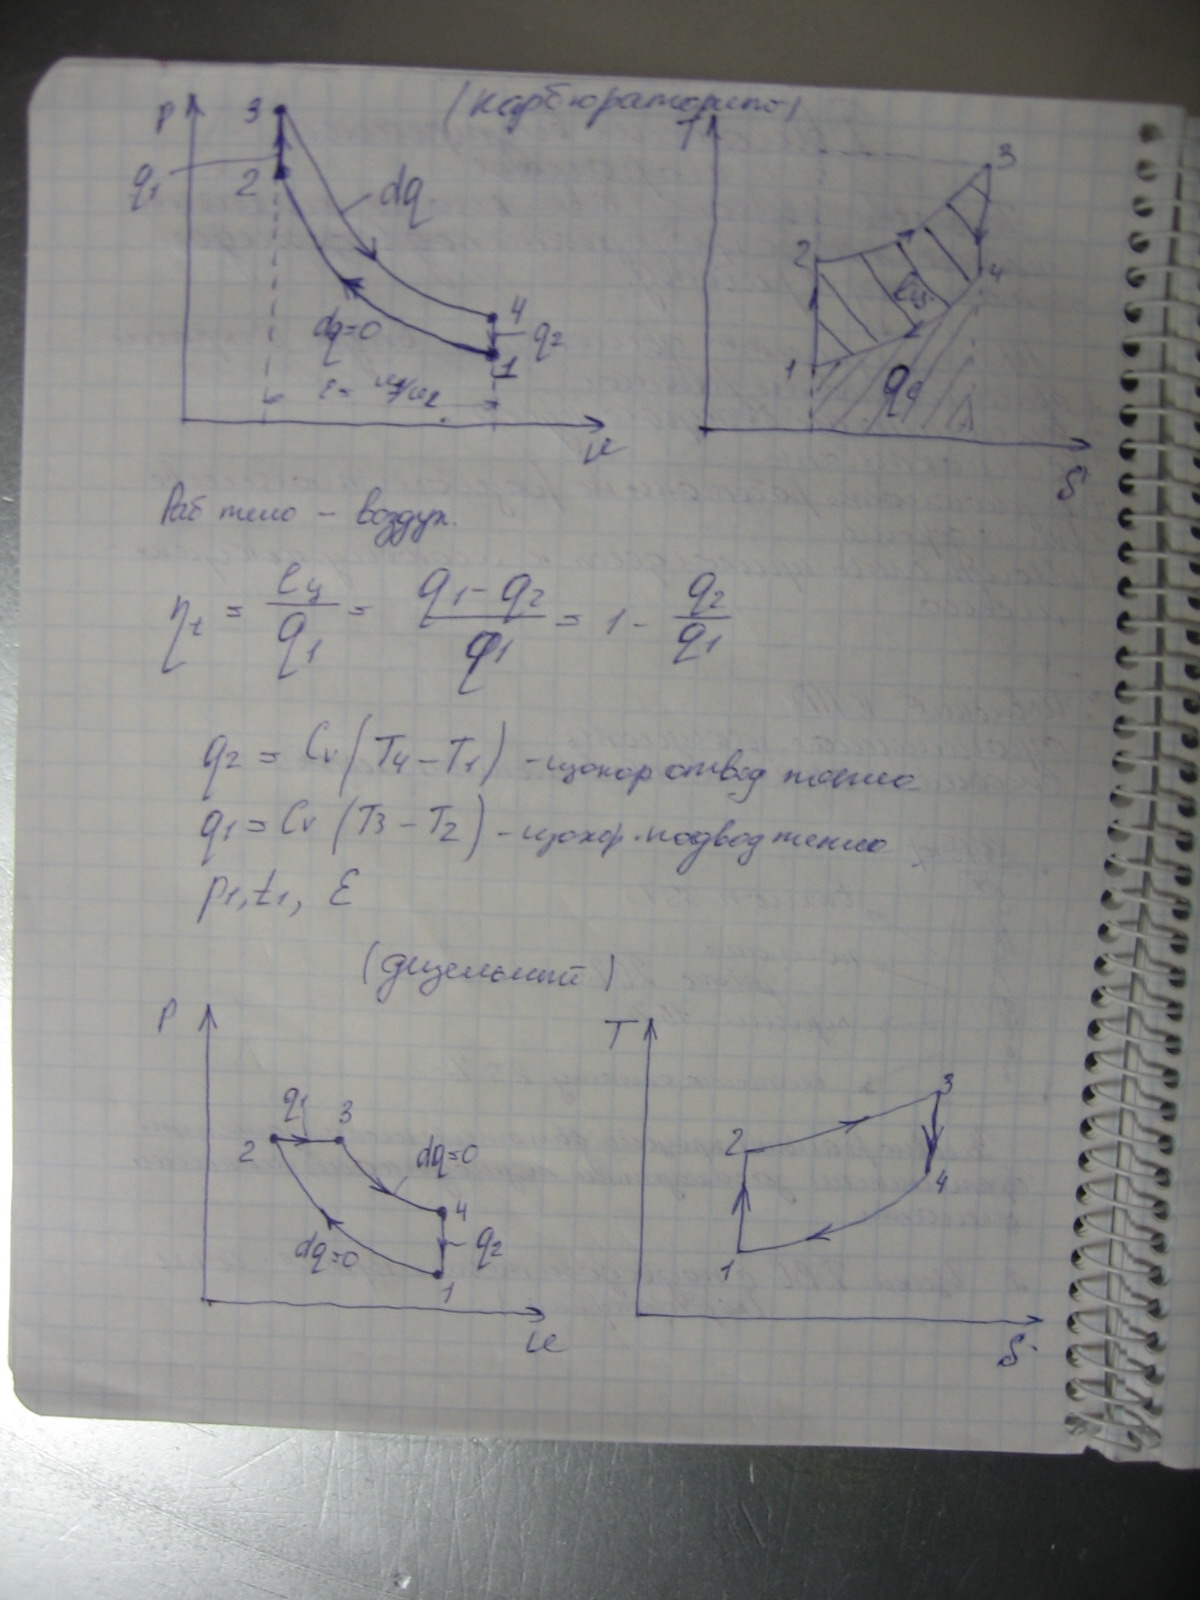 (карбюраторный)
P
3
q1
2
dq
dq=0
4
q2
1
ε = v1/v2
v
T
3
2
4
1
lц
q2
S
Раб тело – воздух.
ηt = lц/q1 = (q1 – q2)/q1 = 1 – q2/q1
q2 = Cv (T4 – T1) – изохор отвод тепла
q1 = Cv (T3 – T2) – изохор подвод тепла
p1, t1, ε
(дизельный)
P
q1
2
3
dq=0
4
dq=0
q2
1
v
T
3
2
4
1
S